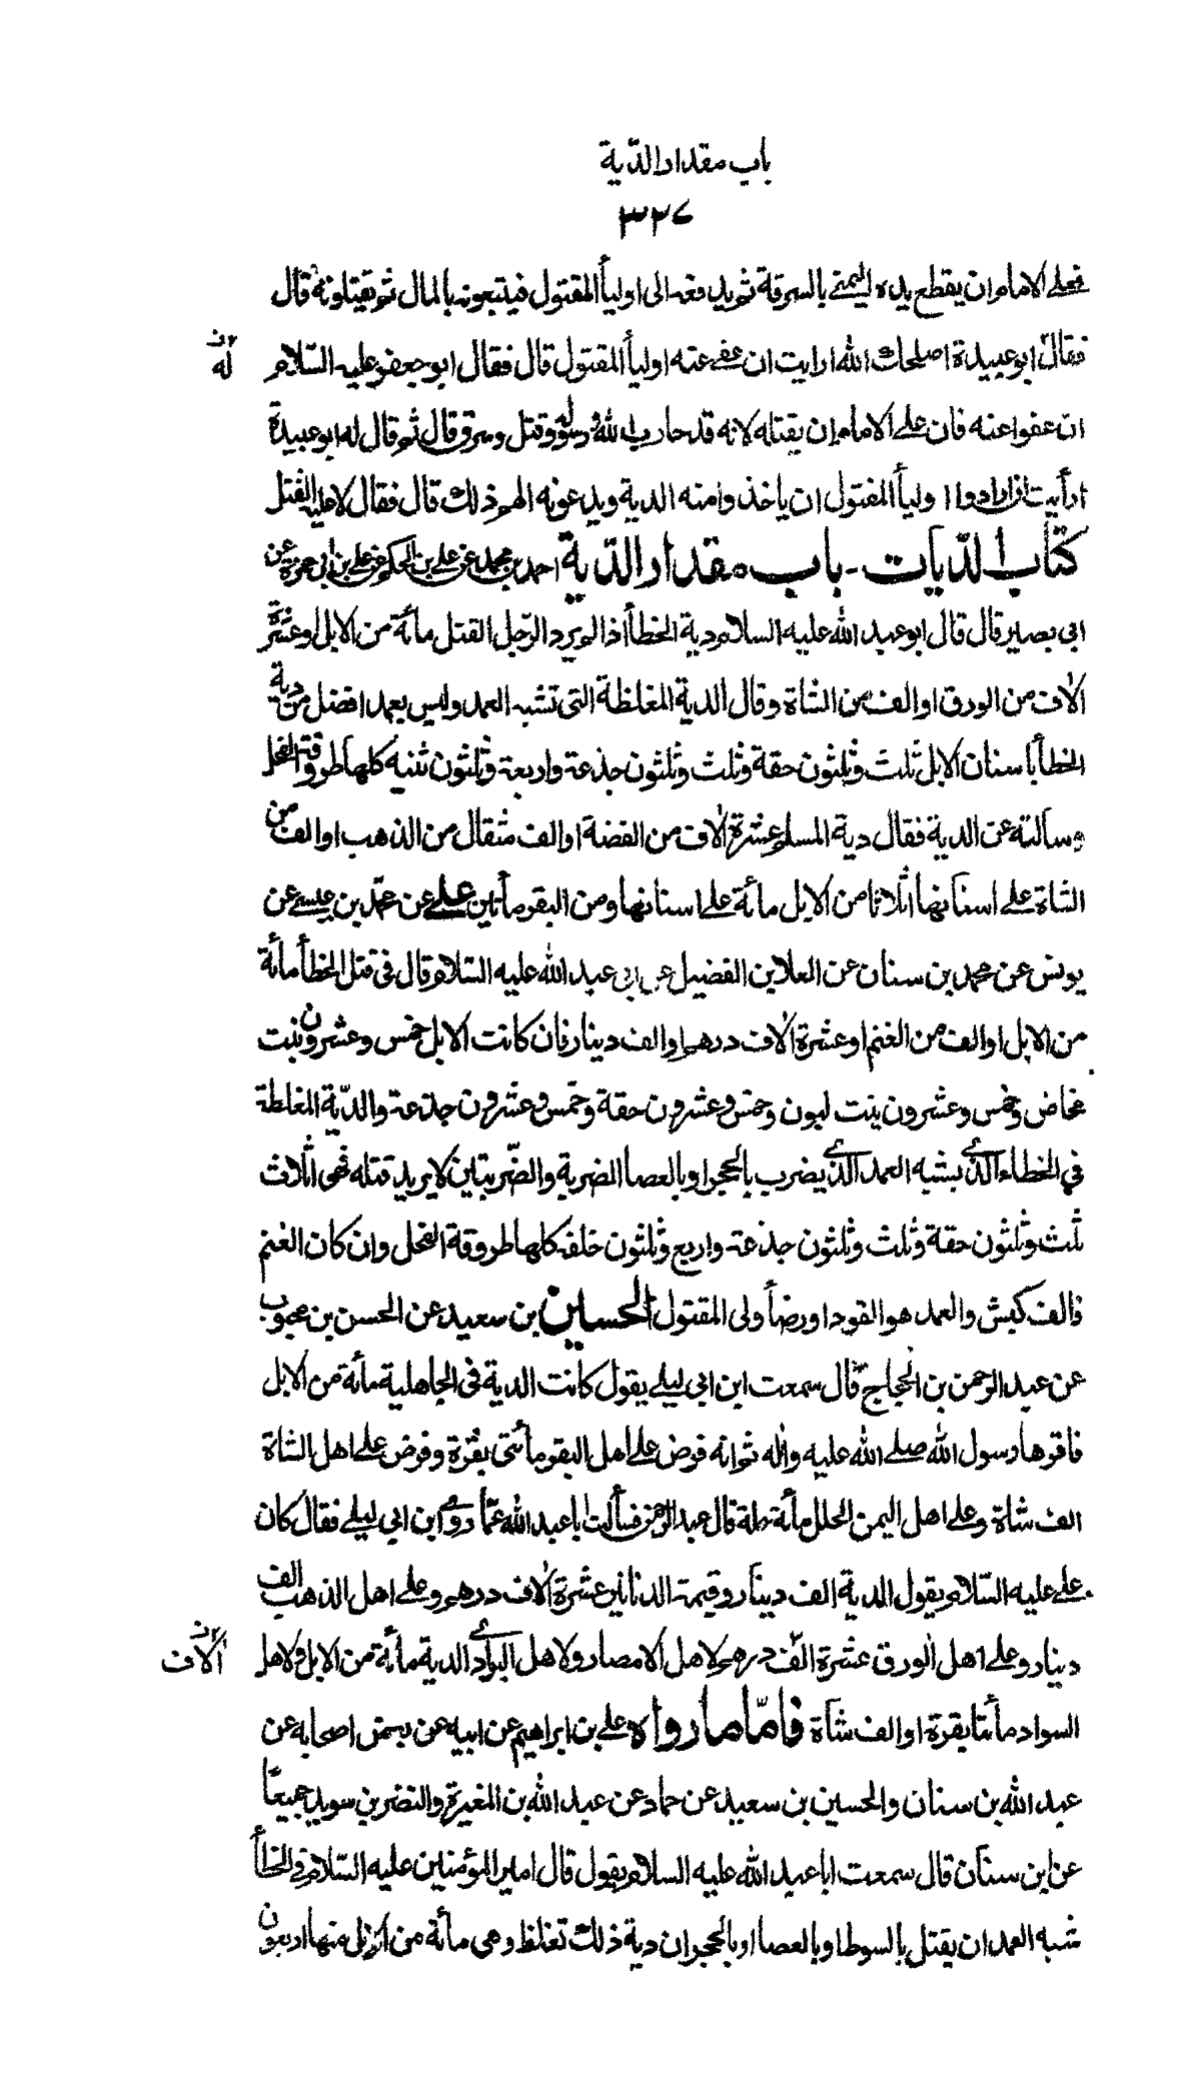 باب مقدار الدّية
٣٢٧
فعلى الامام ان يقطع يده اليمنى بالسرقة ثم يدفعه الى اولياأ المقتول فيتبعونه بالمال ثم يقتلونه قال
فقال ابو عبيدة اصلحك الله ارايت ان عفى عنه اولياأ المقتول قال فقال ابو جعفر عليه السّلام
له
ان عفوا عنه فان على الامام ان يقتله لانه قد حارب الله ورسوله وقتل وسرق قال ثم قال له ابو عبيدة
ارأيت ان ارادوا اولياأ المقتول ان ياخذوا منه الدية ويدعونه الهم ذلك قال فقال لا عليه القتل
كتاب الدّيات - باب مقدار الدّية احمد بن محمد عن على بن الحكم عن على بن ابى حمزة عن
ابى بصير قال قال ابو عبد الله عليه السلام دية الخطأ اذا لم يرد الرّجل القتل مأئة من الابل او عشرة
الاف من الورق او الف من الشاة وقال الدية المغلظة التى تشبه العمد وليس بعمد افضل من دية
الخطأ باسنان الابل ثلث وثلثون حقة وثلث وثلثون جذعة واربعة وثلثون ثنيه كلها طروقة الفحل
وسألته عن الدية فقال دية المسلم عشرة الاف من الفضة او الف مثقال من الذهب او الف من
الشاة على اسنانها اثلاثا من الابل مائة على اسنانها ومن البقر مأتين على عن محمّد بن عيسى عن
يونس عن محمد بن سنان عن العلا بن الفضيل عن ابى عبد الله عليه السّلام قال فى قتل الخطأ مأئة
من الابل او الف من الغنم او عشرة الاف درهم او الف دينار فان كانت الابل خمس وعشرون بنت
مخاض وخمس وعشرون بنت لبون وخمس وعشرون حقة وخمس وعشرون جذعة والدّية المغلظة
في الخطاء الذى يشبه العمد الذى يضرب بالحجر او بالعصا الضربة والضّربتين لا يريد قتله فهى اثلاث
ثلث وثلثون حقة وثلث وثلثون جذعة واربع وثلثون خلفه كلها طروقة الفحل وان كان الغنم
فالف كبش والعمد هو القود او رضأ ولى المقتول الحسين بن سعيد عن الحسن بن محبوب
عن عبد الرحمن بن الحجاج قال سمعت ابن ابى ليلى يقول كانت الدية فى الجاهلية مأئة من الابل
فاقرها رسول الله صلى الله عليه واله ثم انه فرض على اهل البقر مأتى بقرة وفرض على اهل الشاة
الف شاة وعلى اهل اليمن الحلل مأئة حلة قال عبد الرحمن فسألت ابا عبد الله عمّا روى ابن ابى ليلى فقال كان
على عليه السّلام يقول الدية الف دينار وقيمة الدنانير عشرة الاف درهم وعلى اهل الذهب الف
دينار وعلى اهل الورق عشرة الف درهم لاهل الامصار ولاهل البوادى الدية مأئة من الابل ولاهل
الاف
السواد مأتا بقرة او الف شاة فامّا ما رواه على بن ابراهيم عن ابيه عن بعض اصحابه عن
عبد الله بن سنان والحسين بن سعيد عن حماد عن عبد الله بن المغيرة والنضر بن سويد جميعًا
عن ابن سنان قال سمعت ابا عبد الله عليه السلام يقول قال امير المؤمنين عليه السّلام فى الخطأ
شبه العمد ان يقتل بالسوط او بالعصا او بالحجر ان دية ذلك تغلظ وهى مأئة من الابل منها اربعون